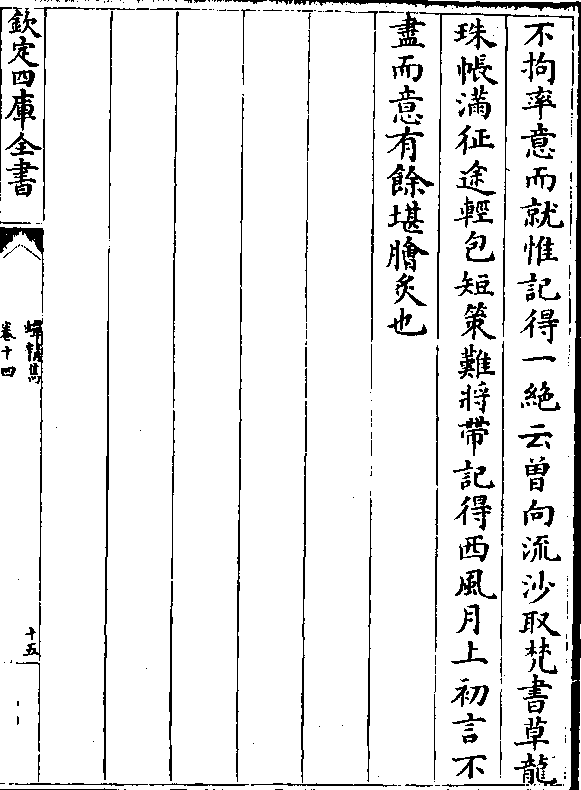 不拘率意而就惟記得一絶云曽向流沙取梵書草龍
珠帳滿征途輕包短策難將帶記得西風月上初言不
盡而意有餘堪膾炙也
欽定四庫全書
蟫精雋
卷十四
十五